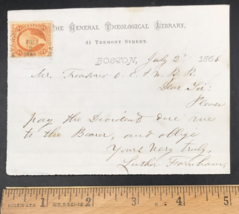 The General Theological Library,
41 Tremont Street.
Boston, July 2 186
Mr. Treasurer
Dear Sir:
Please
pay the Dividend due me
to the Bearer, and oblige
Yours Very truly,
Luther Farnham
1 2 3 4 5